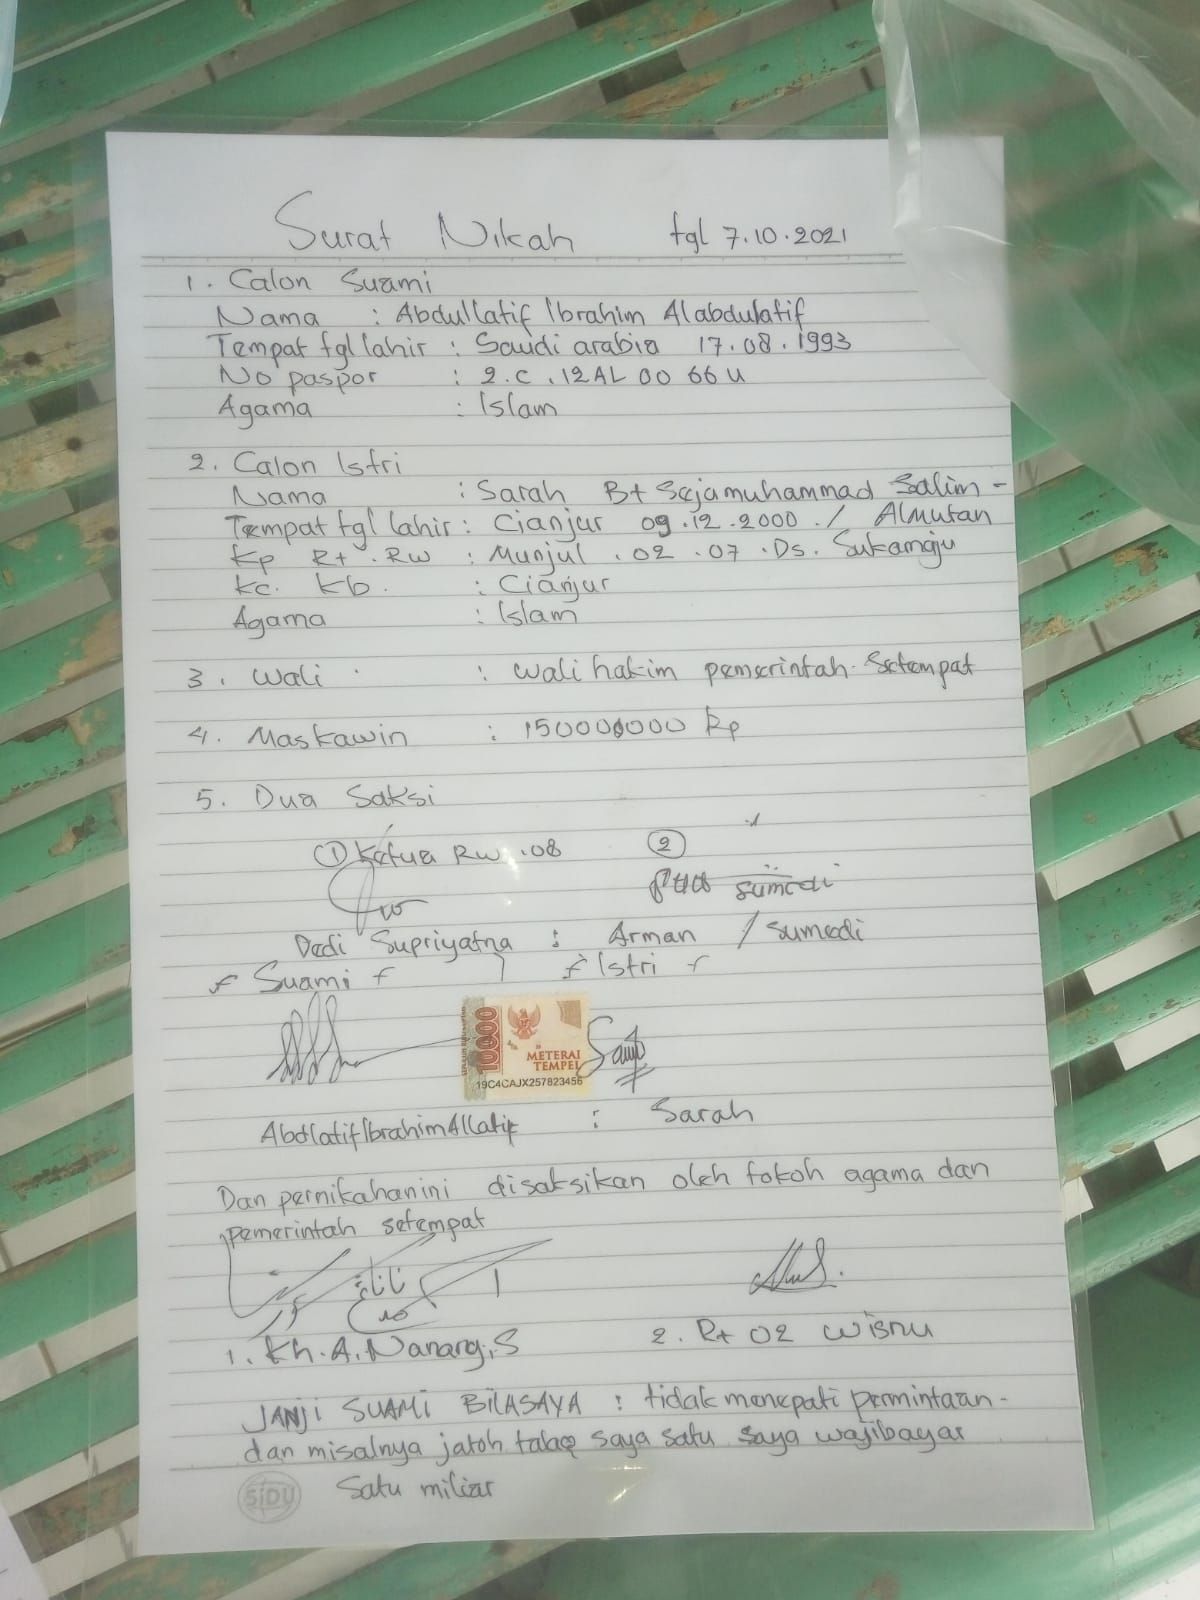 Surat Nikah tgl 7.10.2021
1. Calon Suami
Nama : Abdullatif Ibrahim Alabdulatif
Tempat tgl lahir : Saudi arabia 17.08.1993
No paspor : 2.C.12AL 00 66 U
Agama : Islam
2. Calon Istri
Nama : Sarah Bt Sejamuhammad Salim -
Tempat tgl lahir : Cianjur 09.12.2000 ./ Almutan
Kp Rt . RW : Munjul . 02 . 07 . Ds. Sukamaju
Kc. Kb. : Cianjur
Agama : Islam
3. Wali : wali hakim pemerintah setempat
4. Maskawin : 150000000 Rp
5. Dua Saksi
① Ketua RW .08 ②
sumedi
Dedi Supriyatna : Arman / Sumedi
Suami Istri
10000
METERAI
TEMPEL
19C4CAJX257823456
Abdlatif Ibrahim Allatif : Sarah
Dan pernikahan ini disaksikan oleh tokoh agama dan
pemerintah setempat
1. Kh. A. Nanang, S 2. Rt 02 Wisnu
JANJI SUAMI BILA SAYA : tidak menepati permintaan -
dan misalnya jatoh talaq saya satu saya wajib bayar
SiDU Satu miliar